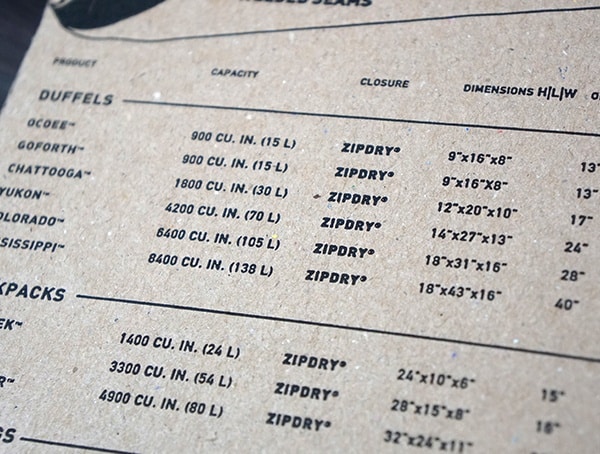 WELDED SEAMS
PRODUCT CAPACITY CLOSURE DIMENSIONS H|L|W
DUFFELS
OCOEE™ 900 CU. IN. (15 L) ZIPDRY® 9"x16"x8" 13"
GOFORTH™ 900 CU. IN. (15 L) ZIPDRY® 9"x16"X8" 13"
CHATTOOGA™ 1800 CU. IN. (30 L) ZIPDRY® 12"x20"x10" 17"
YUKON™ 4200 CU. IN. (70 L) ZIPDRY® 14"x27"x13" 24"
OLORADO™ 6400 CU. IN. (105 L) ZIPDRY® 18"x31"x16" 28"
SISSIPPI™ 8400 CU. IN. (138 L) ZIPDRY® 18"x43"x16" 40"
KPACKS
EK™ 1400 CU. IN. (24 L) ZIPDRY® 24"x10"x6" 15"
3300 CU. IN. (54 L) ZIPDRY® 28"x15"x8" 16"
R™ 4900 CU. IN. (80 L) ZIPDRY® 32"x24"x11"
GS